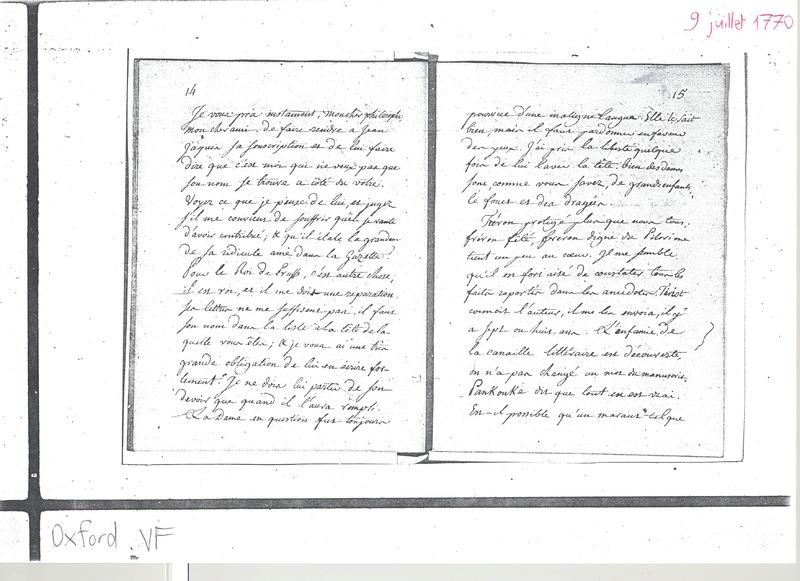 9 juillet 1770
14
Je vous prie instament, mon cher philosophe
mon cher ami, de faire rendre a Jean
Jaques sa souscription et de lui faire
dire que c'est moi qui ne veux pas que
son nom se trouve a côté du votre.
Voyez ce que je pense de lui, et jugez
s'il me convient de souffrir qu'il se vante
d'avoir contribué; & qu'il étale la grandeur
de sa ridicule ame dans la Gazette.
Pour le Roi de Prusse, c'est autre chose,
il est roi, et il me doit une reparation.
ses lettres ne me suffisent pas, il faut
son nom dans la liste a la tête de la
quelle vous êtes; & je vous ai une tres
grande obligation de lui en écrire for
tement. Je ne dois lui parler de son
devoir que quand il l'aura rempli.
La Dame en question fut toujours
15
pourvue d'une maligne langue. Elle le sait
bien, mais il faut pardonner en faveur
des yeux. J'ai pris la liberté quelque
fois de lui laver la tête, bien des dames
sont comme vous savez, de grands enfants,
le fouet et des dragées.
Fréron protegé plus que nous tous,
fréron fêté, freron digne du Pilori me
tient un peu au cœur. Il me semble
qu'il en fort aisé de constater tous les
faits raportés dans les anecdotes. Tiriot
connoit l'auteur, il me les envoia, il y
a sept ou huit ans. L'infamie de
la canaille littéraire est découverte,
on n'a pas changé un mot du manuscrit.
Pankouke dit que tout en est vrai.
Est-il possible qu'un maraut tel que
Oxford VF